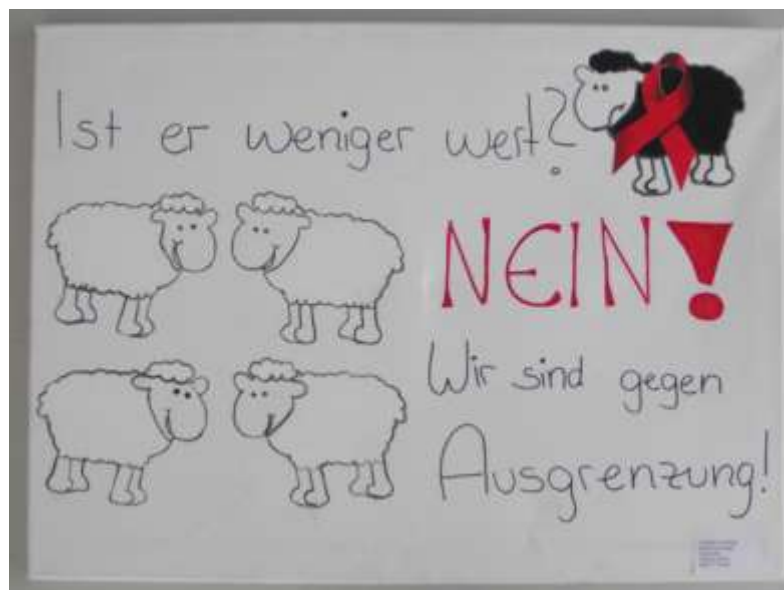 Ist er weniger wert?
NEIN!
Wir sind gegen
Ausgrenzung!